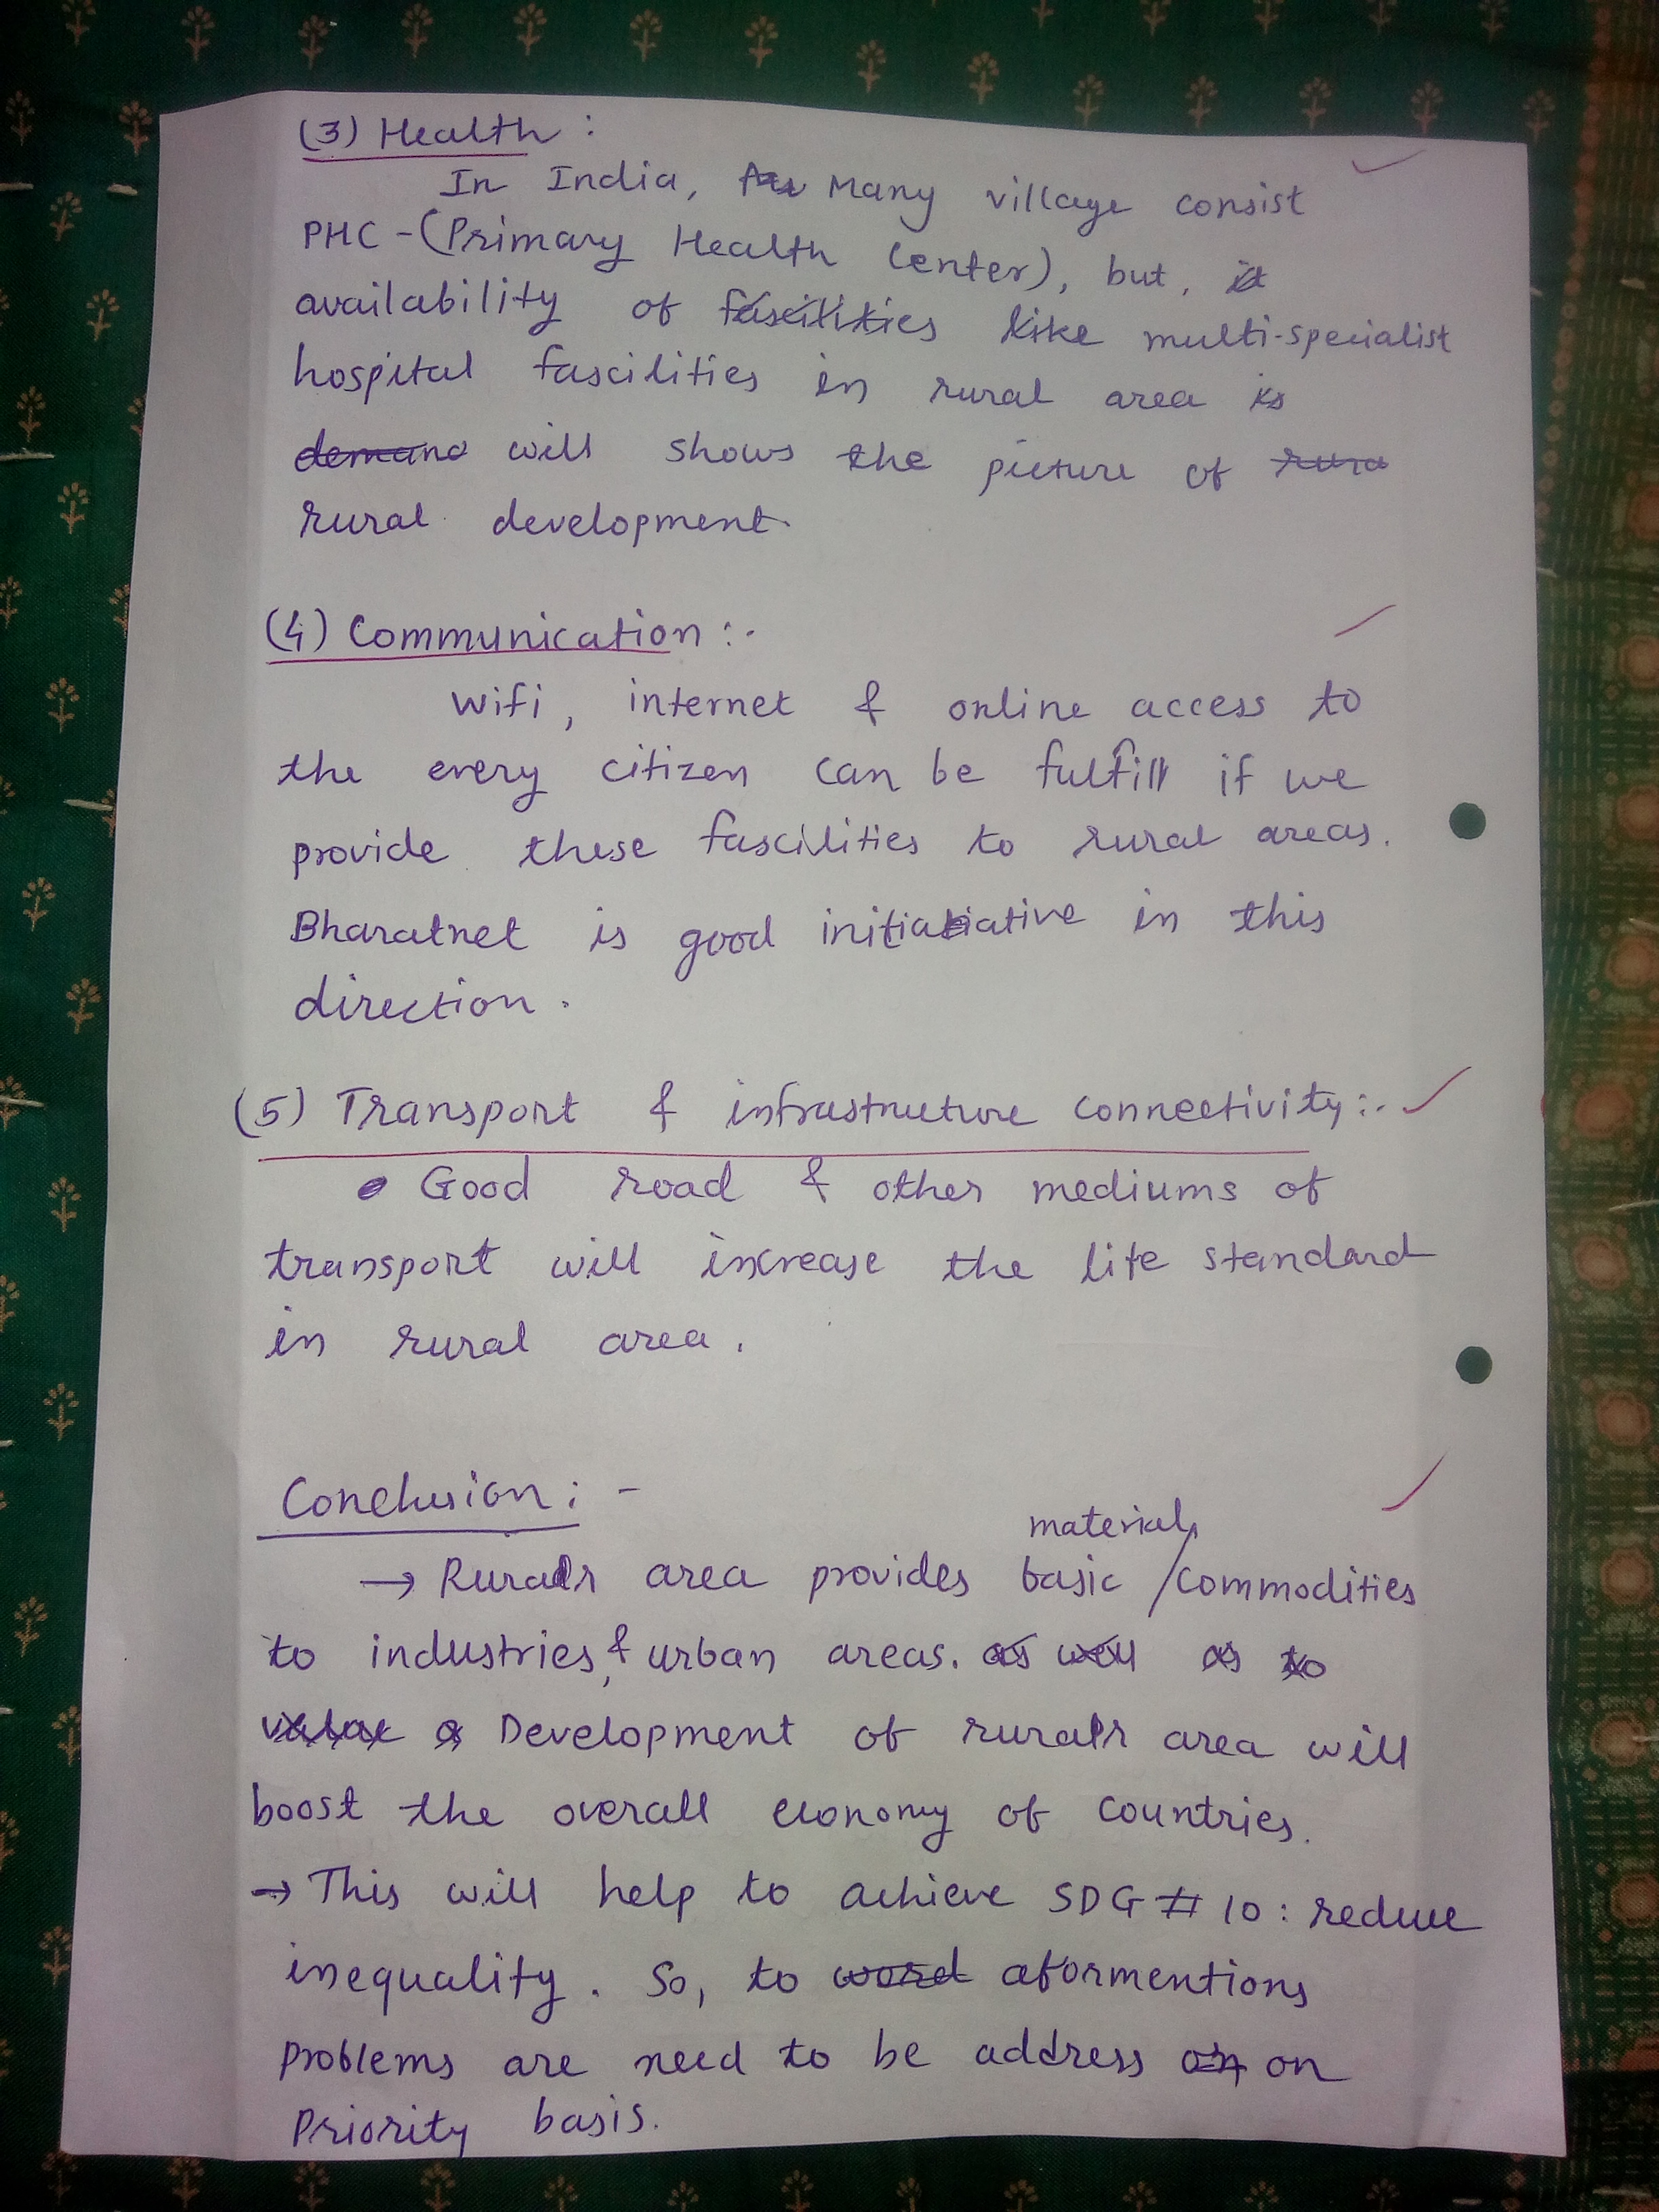 (3) Health :
In India, Many village consist
PHC - (Primary Health Center), but,
availability of like multi-specialist
hospital fascilities in rural area
will shows the picture of
rural development.
(4) Communication :-
Wifi, internet & online access to
the every citizen can be fulfill if we
provide these fascilities to rural areas.
Bharatnet is good initiative in this
direction.
(5) Transport & infrastructure connectivity :-
Good road & other mediums of
transport will increase the life standard
in rural area.
Conclusion : -
material
→ Rural area provides basic / commodities
to industries, & urban areas.
Development of rural area will
boost the overall economy of countries.
→ This will help to achieve SDG # 10 : reduce
inequality. So, to aformentions
problems are need to be address on
Priority basis.